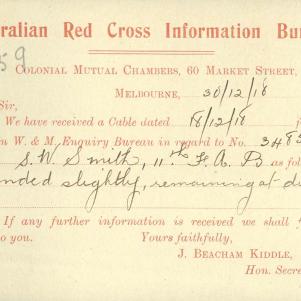 ralian Red Cross Information Bu
59
Colonial Mutual Chambers, 60 Market Street,
Melbourne, 30/12/18
Sir,
We have received a Cable dated 18/12/18
n W. & M. Enquiry Bureau in regard to No. 348
S. W. Smith, 11th F. A. B as fol
nded slightly, remaining at d
If any further information is received we shall
o you. Yours faithfully,
J. BEACHAM KIDDLE,
Hon. Secre